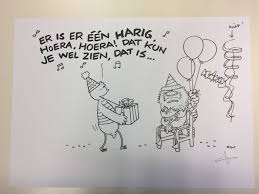 ER IS ER ÉÉN HARIG,
HOERA, HOERA! DAT KUN
JE WEL ZIEN, DAT IS...